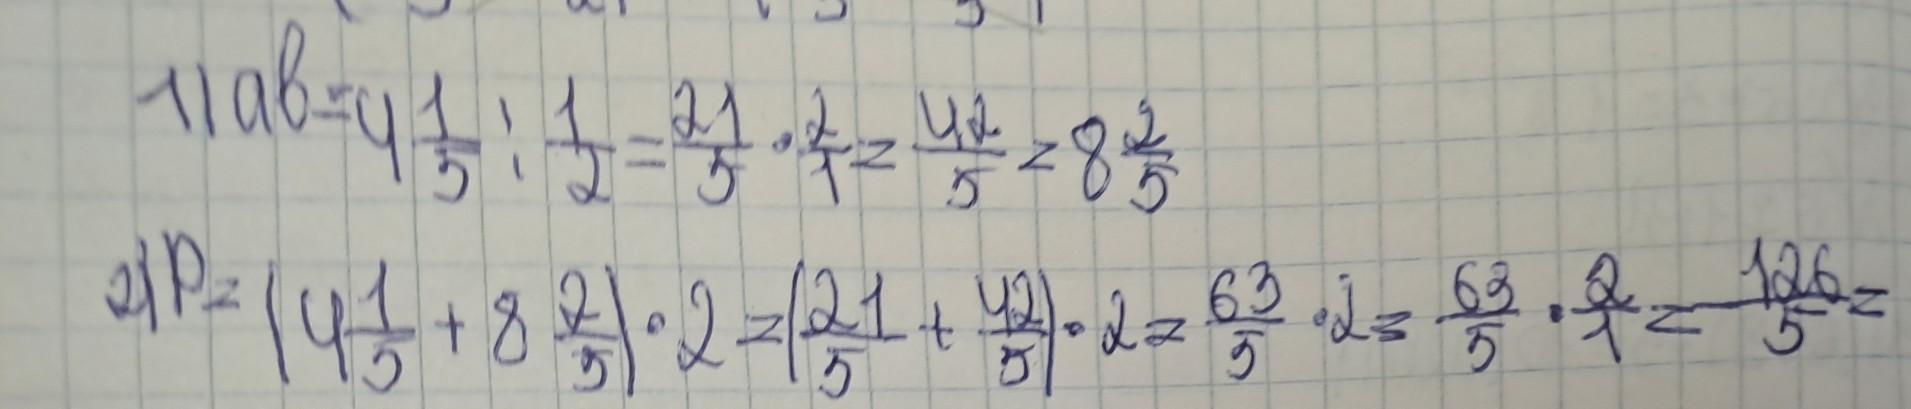 1) ab = 4 1/5 : 1/2 = 21/5 · 2/1 = 42/5 = 8 2/5
2) P = (4 1/5 + 8 2/5) · 2 = (21/5 + 42/5) · 2 = 63/5 · 2 = 63/5 · 2/1 = 126/5 =